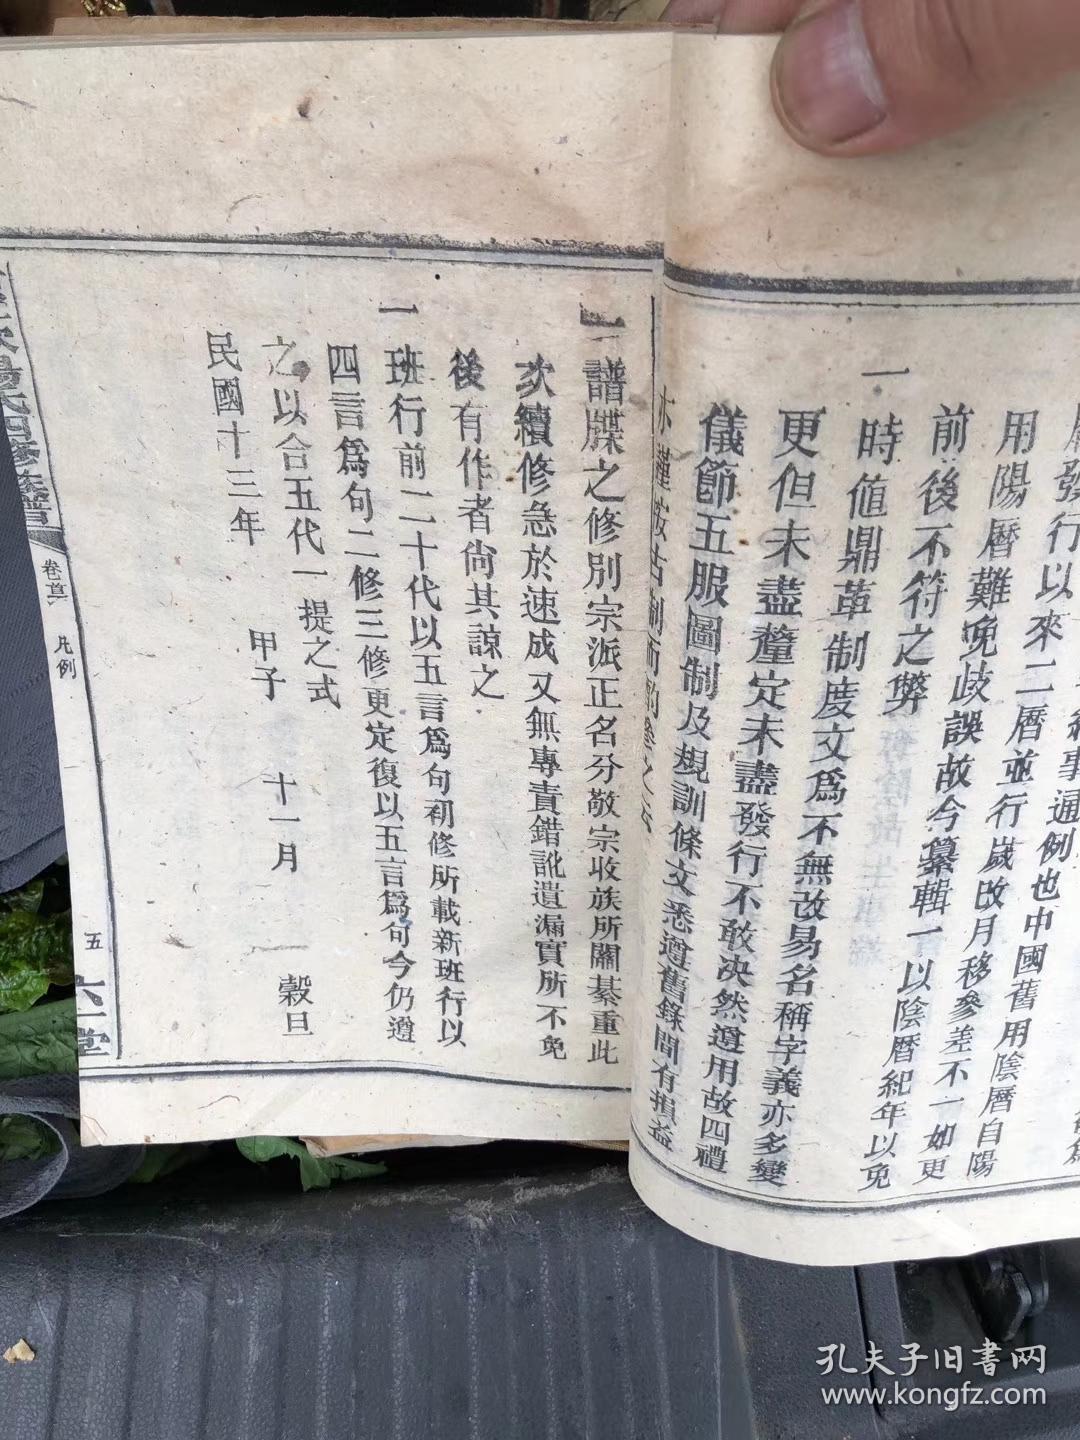 發行以來二曆並行歲改月移參差不一如更
用陽曆難免歧誤故今纂輯一以陰曆紀年以免
前後不符之弊
一時値鼎革制度文爲不無改易名稱字義亦多變
更但未盡釐定未盡發行不敢決然遵用故四禮
儀節五服圖制及規訓條文悉遵舊錄間有損益
亦謹按古制而酌參之云
一譜牒之修別宗派正名分敬宗收族所關綦重此
次續修急於速成又無專責錯訛遺漏實所不免
後有作者尙其諒之
一班行前二十代以五言爲句初修所載新班行以
四言爲句二修三修更定復以五言爲句今仍遵
之以合五代一提之式
民國十三年 甲子 十一月 穀旦
氏四修族譜
卷首 凡例
五
六一堂
孔夫子旧書网
www.kongfz.com